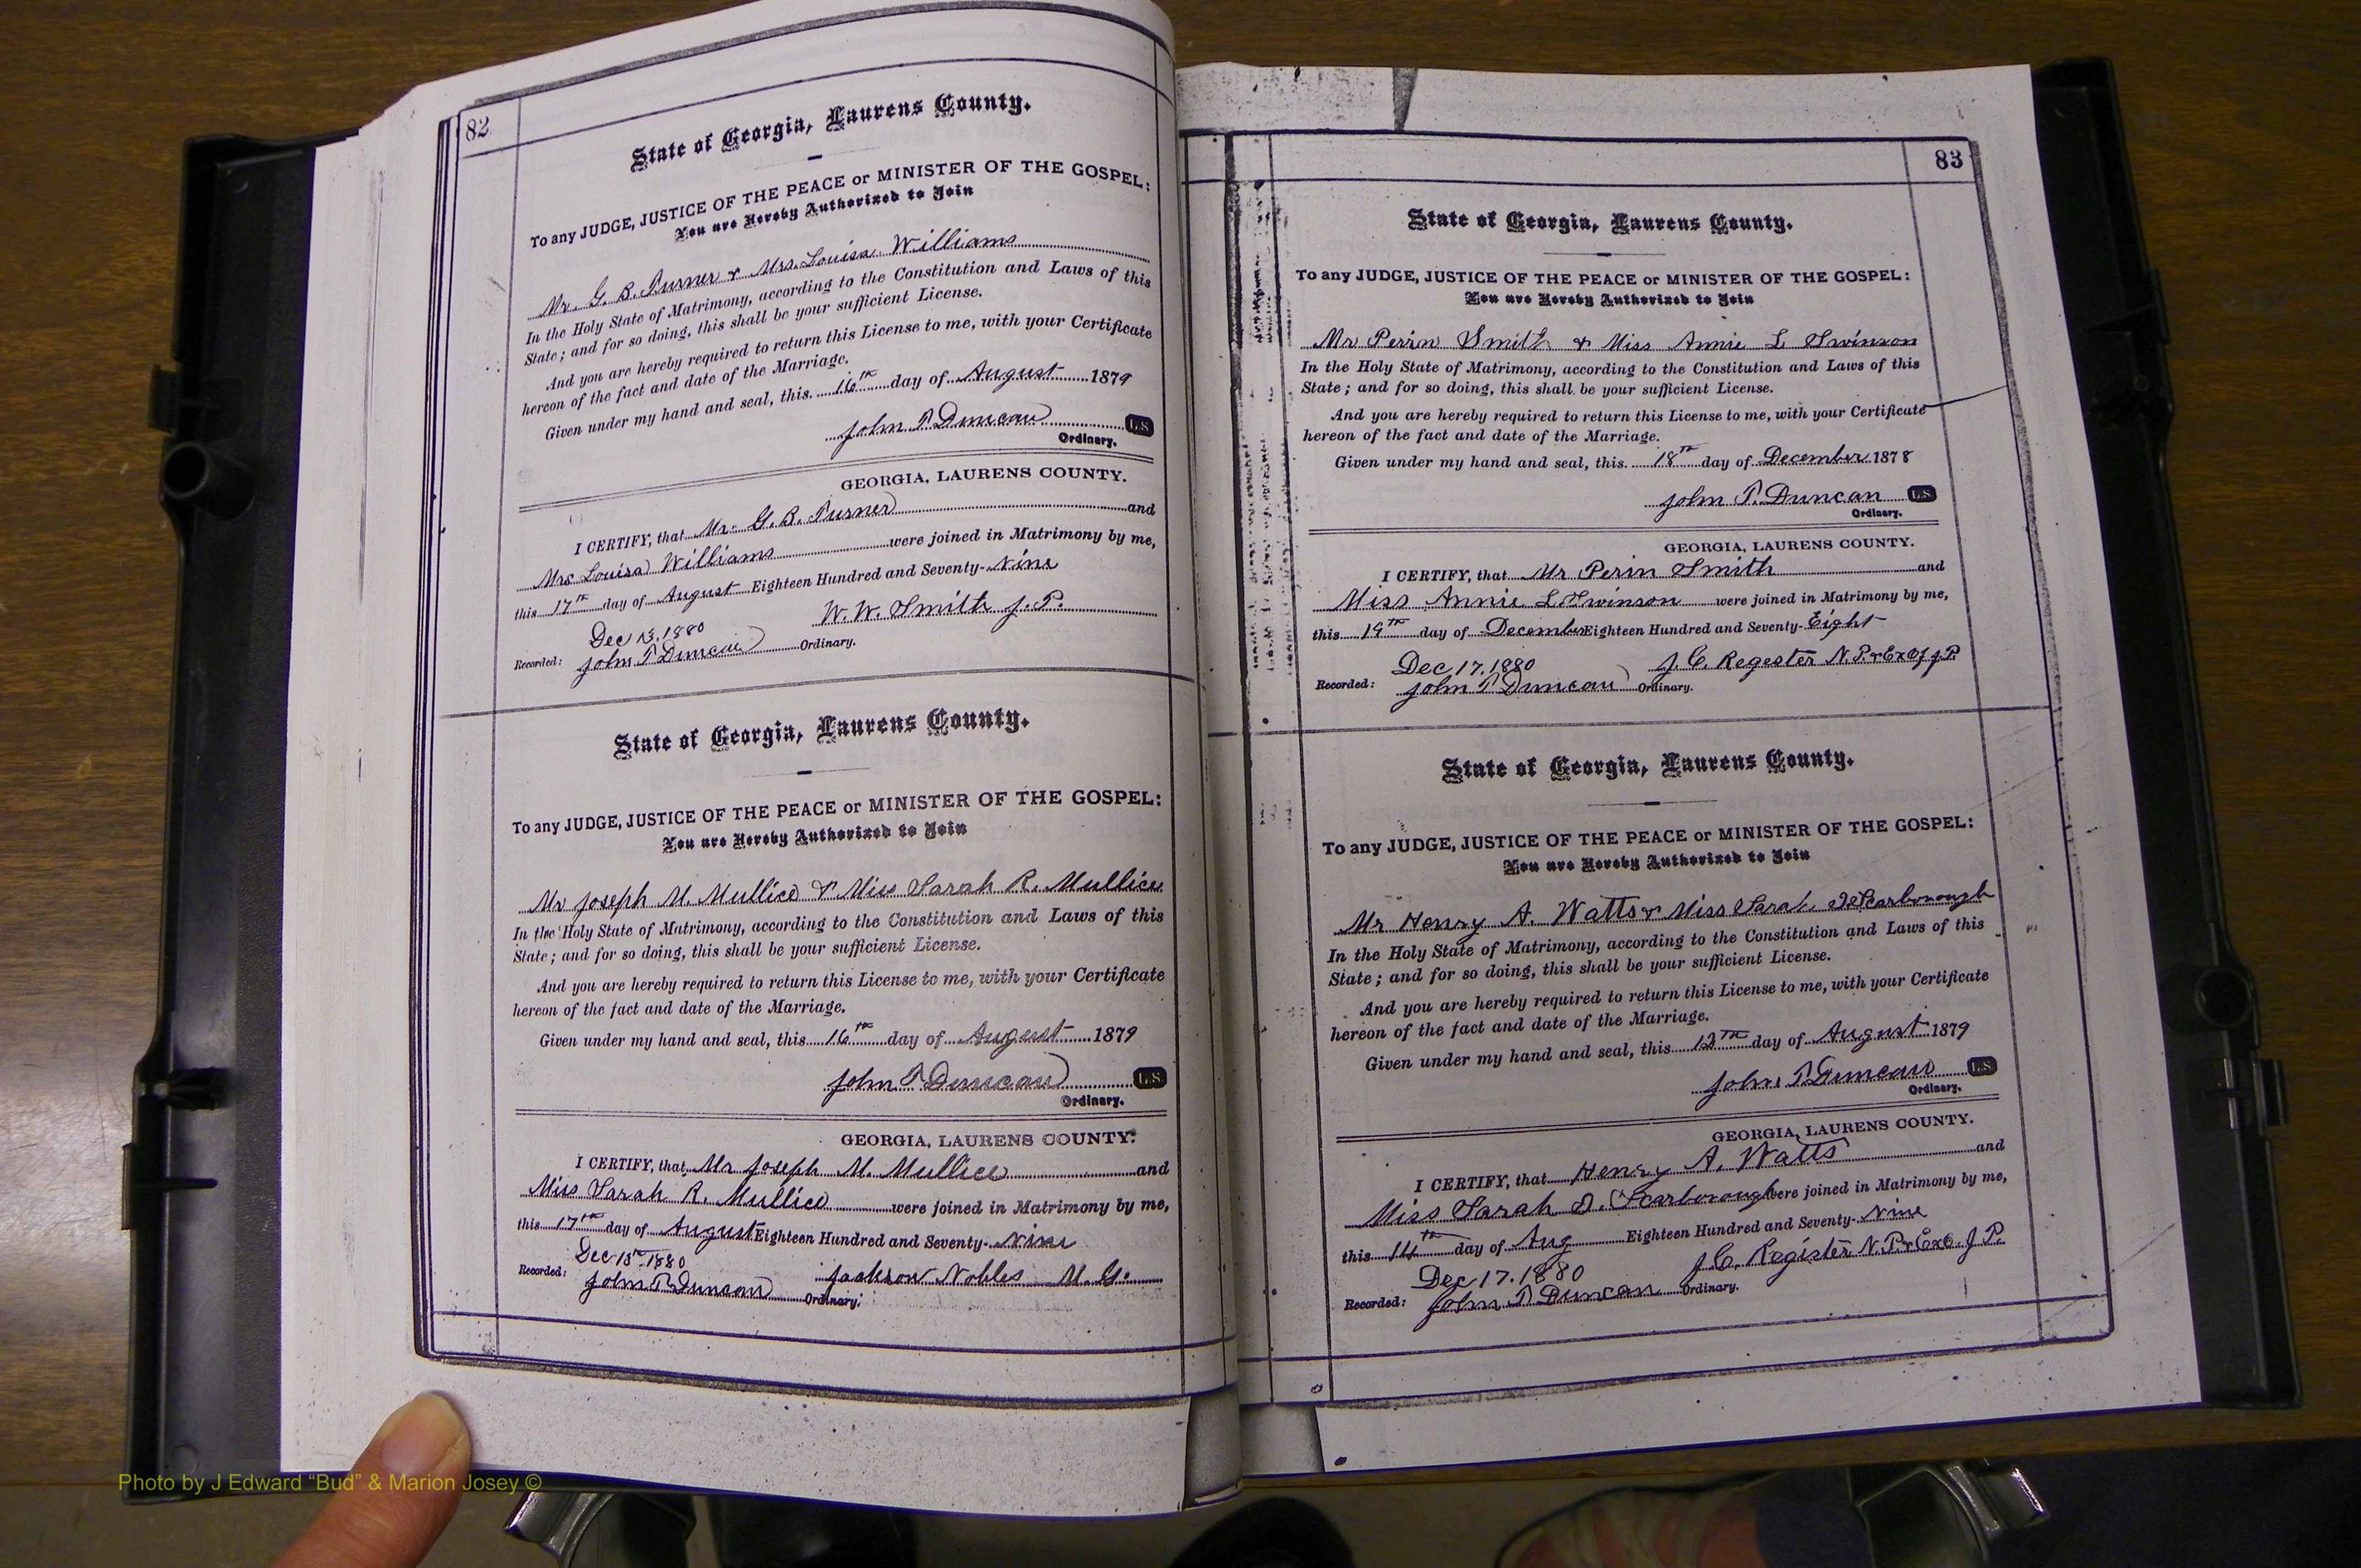 82
State of Georgia, Laurens County.
To any JUDGE, JUSTICE OF THE PEACE or MINISTER OF THE GOSPEL:
You are Hereby Authorized to Join
Mr. G. B. Turner & Mrs. Louisa Williams
In the Holy State of Matrimony, according to the Constitution and Laws of this
State; and for so doing, this shall be your sufficient License.
And you are hereby required to return this License to me, with your Certificate
hereon of the fact and date of the Marriage.
Given under my hand and seal, this 16th day of August 1879
John T Duncan L.S.
Ordinary.
GEORGIA, LAURENS COUNTY.
I CERTIFY, that Mr. G. B. Turner and
Mrs Louisa Williams were joined in Matrimony by me,
this 17th day of August Eighteen Hundred and Seventy-Nine
W. W. Smith J. P.
Dec 13, 1880
Recorded: John T Duncan Ordinary.
State of Georgia, Laurens County.
To any JUDGE, JUSTICE OF THE PEACE or MINISTER OF THE GOSPEL:
You are Hereby Authorized to Join
Mr Joseph M. Mullice & Miss Sarah R. Mullice
In the Holy State of Matrimony, according to the Constitution and Laws of this
State; and for so doing, this shall be your sufficient License.
And you are hereby required to return this License to me, with your Certificate
hereon of the fact and date of the Marriage.
Given under my hand and seal, this 16th day of August 1879
John T Duncan L.S.
Ordinary.
GEORGIA, LAURENS COUNTY.
I CERTIFY, that Mr Joseph M. Mullice and
Miss Sarah R. Mullice were joined in Matrimony by me,
this 17th day of August Eighteen Hundred and Seventy-Nine
Dec 13th 1880 Jackson Nobles M. G.
Recorded: John T Duncan Ordinary.
83
State of Georgia, Laurens County.
To any JUDGE, JUSTICE OF THE PEACE or MINISTER OF THE GOSPEL:
You are Hereby Authorized to Join
Mr Perin Smith & Miss Annie L Swinson
In the Holy State of Matrimony, according to the Constitution and Laws of this
State; and for so doing, this shall be your sufficient License.
And you are hereby required to return this License to me, with your Certificate
hereon of the fact and date of the Marriage.
Given under my hand and seal, this 18th day of December 1878
John T. Duncan L.S.
Ordinary.
GEORGIA, LAURENS COUNTY.
I CERTIFY, that Mr Perin Smith and
Miss Annie L Swinson were joined in Matrimony by me,
this 19th day of December Eighteen Hundred and Seventy-Eight
Dec 17, 1880 J. C. Regester N. P. & Ex Of J. P.
Recorded: John T Duncan Ordinary.
State of Georgia, Laurens County.
To any JUDGE, JUSTICE OF THE PEACE or MINISTER OF THE GOSPEL:
You are Hereby Authorized to Join
Mr Henry A. Watts & Miss Sarah Scarborough
In the Holy State of Matrimony, according to the Constitution and Laws of this
State; and for so doing, this shall be your sufficient License.
And you are hereby required to return this License to me, with your Certificate
hereon of the fact and date of the Marriage.
Given under my hand and seal, this 13th day of August 1879
John T Duncan L.S.
Ordinary.
GEORGIA, LAURENS COUNTY.
I CERTIFY, that Henry A. Watts and
Miss Sarah Scarborough were joined in Matrimony by me,
this 14th day of Aug Eighteen Hundred and Seventy-Nine
Dec 17. 1880 J. C. Register N. P. & Exo. J P.
Recorded: John T Duncan Ordinary.
Photo by J Edward "Bud" & Marion Josey ©